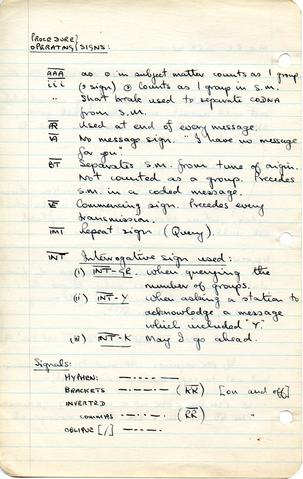 PROCEDURE }
OPERATING } SIGNS:
AAA as o in subject matter counts as 1 group
LLL ( sign) Counts as 1 group in s.m.
" Short brake used to separate CODNA
from S.M.
AR Used at end of every message.
VA No message sign. "I have no message
for you".
BT Separates s.m. from time of origin.
Not counted as a group. Precedes
s.m. in a coded message.
VE Commencing sign. Precedes every
transmission.
IMI Repeat sign (Query).
INT Interrogative sign used:
(i) INT- when querying the
number of groups.
(ii) INT-Y when asking a station to
acknowledge a message
which included 'Y'.
(iii) INT-K May I go ahead.
Signals:
HYPHEN: —····—
BRACKETS —·——·— (KK) [on and off]
INVERTED
COMMAS ·—··—· (RR) "
OBLIQUE [/] —··—·